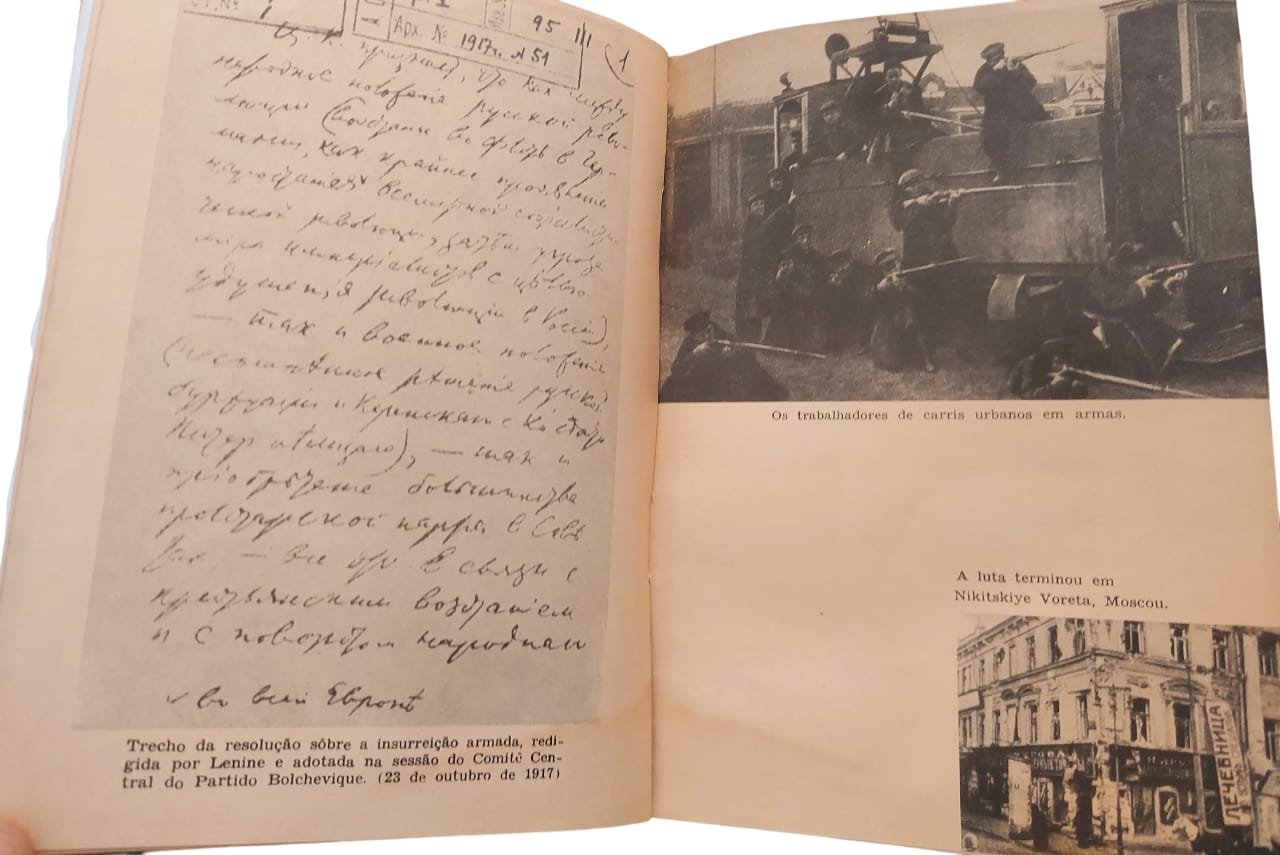 95 III
1 Арх. № 1917г. А 51 1
Ц. К. признает, что как между
народное положение русской рево-
люции (восстание во флоте в Гер-
мании, как крайнее проявление
нарастания всемирной социалисти
ческой революции, затем угроза
мира империалистов с целью
удушения революции в России),
— так и военное положение
(несомненное решение русской
буржуазии и Керенского с Ко сдать
Питер немцам), — так и
приобретение большинства
пролетарской партией в Сове
тах — все это в связи с
крестьянским восстанием
и с поворотом народного
во всей Европе
Trecho da resolução sôbre a insurreição armada, redi-
gida por Lenine e adotada na sessão do Comitê Cen-
tral do Partido Bolchevique. (23 de outubro de 1917)
Os trabalhadores de carris urbanos em armas.
A luta terminou em
Nikitskiye Voreta, Moscou.
ЛЕЧЕБНИЦА